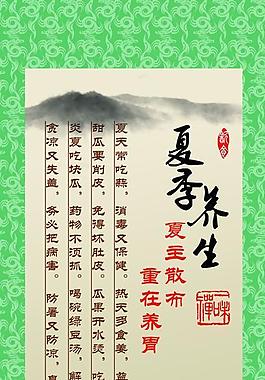 夏季养生
夏主散布
重在养胃
夏天常吃蒜，消毒又保健。热天多食姜，益
甜瓜要削皮，免得坏肚皮。瓜果开水烫，吃
炎夏吃块瓜，药物不须抓。喝碗绿豆汤，解
贪凉又失盖，务必把病害。防暑又防凉，